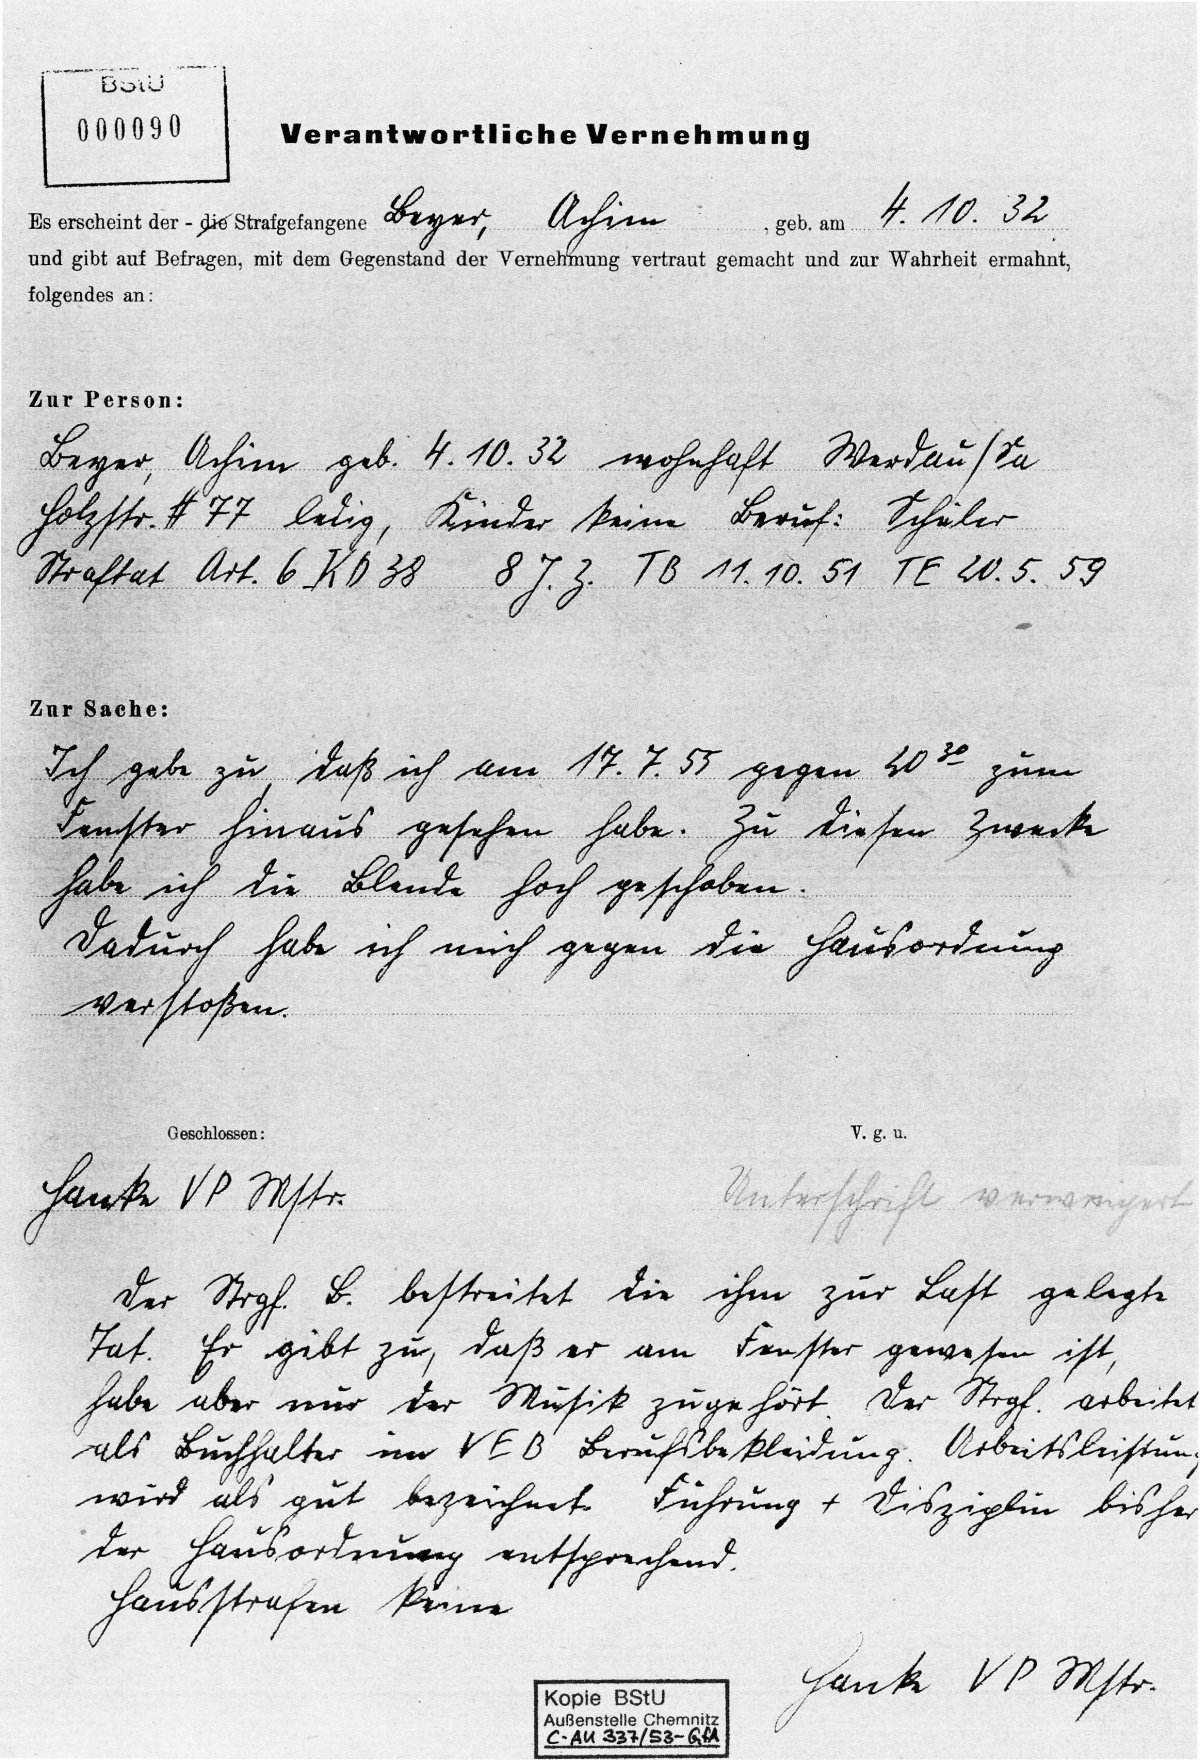 BStU
000090
Verantwortliche Vernehmung
Es erscheint der - die Strafgefangene Beyer, Achim , geb. am 4. 10. 32
und gibt auf Befragen, mit dem Gegenstand der Vernehmung vertraut gemacht und zur Wahrheit ermahnt,
folgendes an:
Zur Person:
Beyer, Achim geb. 4. 10. 32 wohnhaft Werdau/Sa
Holzstr. # 77 ledig, Kinder keine Beruf: Schüler
Straftat Art. 6 KD 38 8 J. Z. TB 11. 10. 51 TE 20. 5. 59
Zur Sache:
Ich gebe zu, daß ich am 17. 7. 55 gegen 20 30 zum
Fenster hinaus gesehen habe. Zu diesen Zwecke
habe ich die Blende hoch geschoben.
Dadurch habe ich mich gegen die Hausordnung
verstoßen.
Geschlossen: V. g. u.
Hanke VP Mstr. Unterschrift verweigert
Der Strgf. B. bestreitet die ihm zur Last gelegte
Tat. Er gibt zu, daß er am Fenster gewesen ist,
habe aber nur der Musik zugehört. Der Strgf. arbeitet
als Buchhalter im VEB Berufsbekleidung. Arbeitsleistung
wird als gut bezeichnet. Führung + Disziplin bisher
der Hausordnung entsprechend.
Hausstrafen keine
Hanke VP Mstr.
Kopie BStU
Außenstelle Chemnitz
C-AU 337/53-GfA